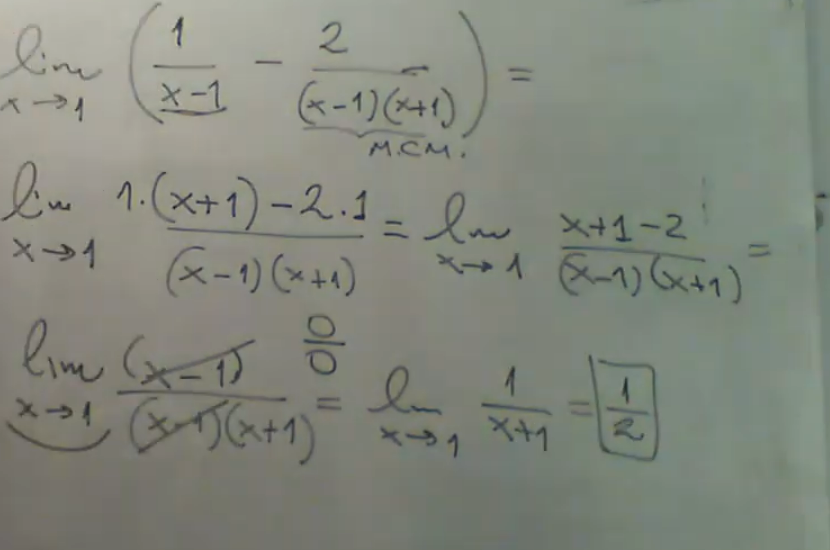 lim x→1 ( 1/(x-1) - 2/((x-1)(x+1)) ) =
M.C.M.
lim x→1 (1·(x+1)-2·1)/((x-1)(x+1)) = lim x→1 (x+1-2)/((x-1)(x+1)) =
lim x→1 (x-1)/((x-1)(x+1)) 0/0 = lim x→1 1/(x+1) = 1/2